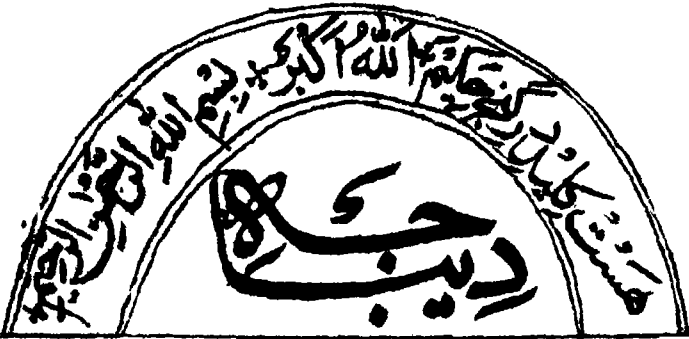 هست کلید در گنج حکیم الله اکبر بسم الله الرحمن الرحیم
دیباجه